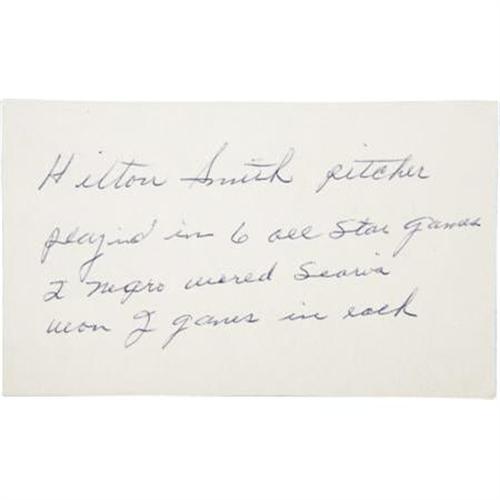 Hilton Smith pitcher
played in 6 all Star games
2 negro wored Searia
won 2 games in each